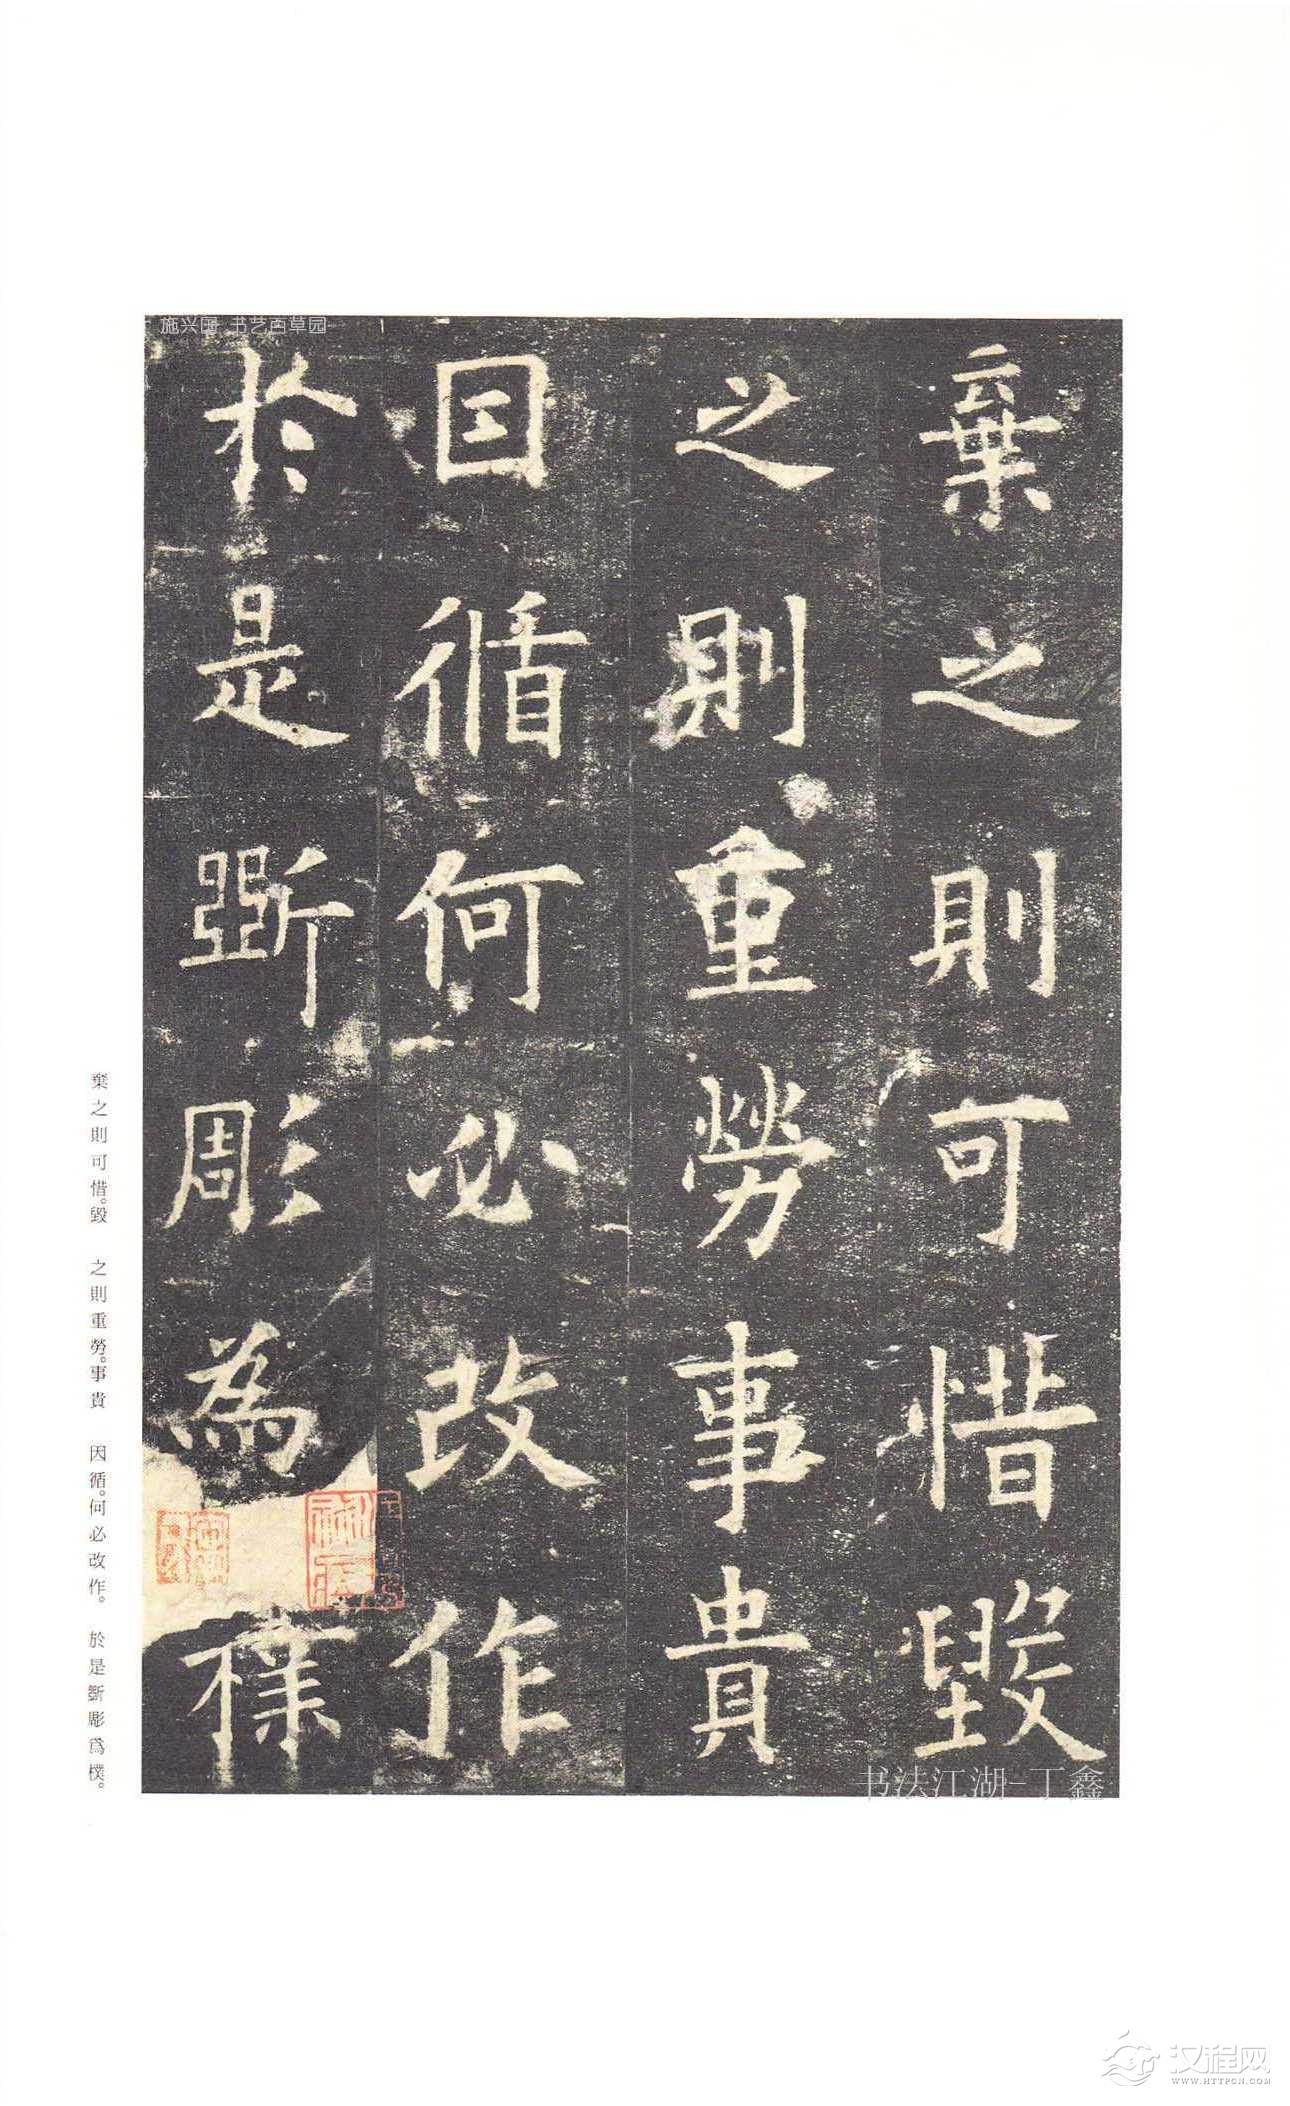 棄之則可惜毀
之則重勞事貴
因循何必改作
於是斲彫為樸
棄之則可惜。毀　之則重勞。事貴　因循。何必改作。　於是斲彫爲樸。
施兴国 书艺百草园
书法江湖-丁鑫
汉程网
WWW.HTTPCN.COM